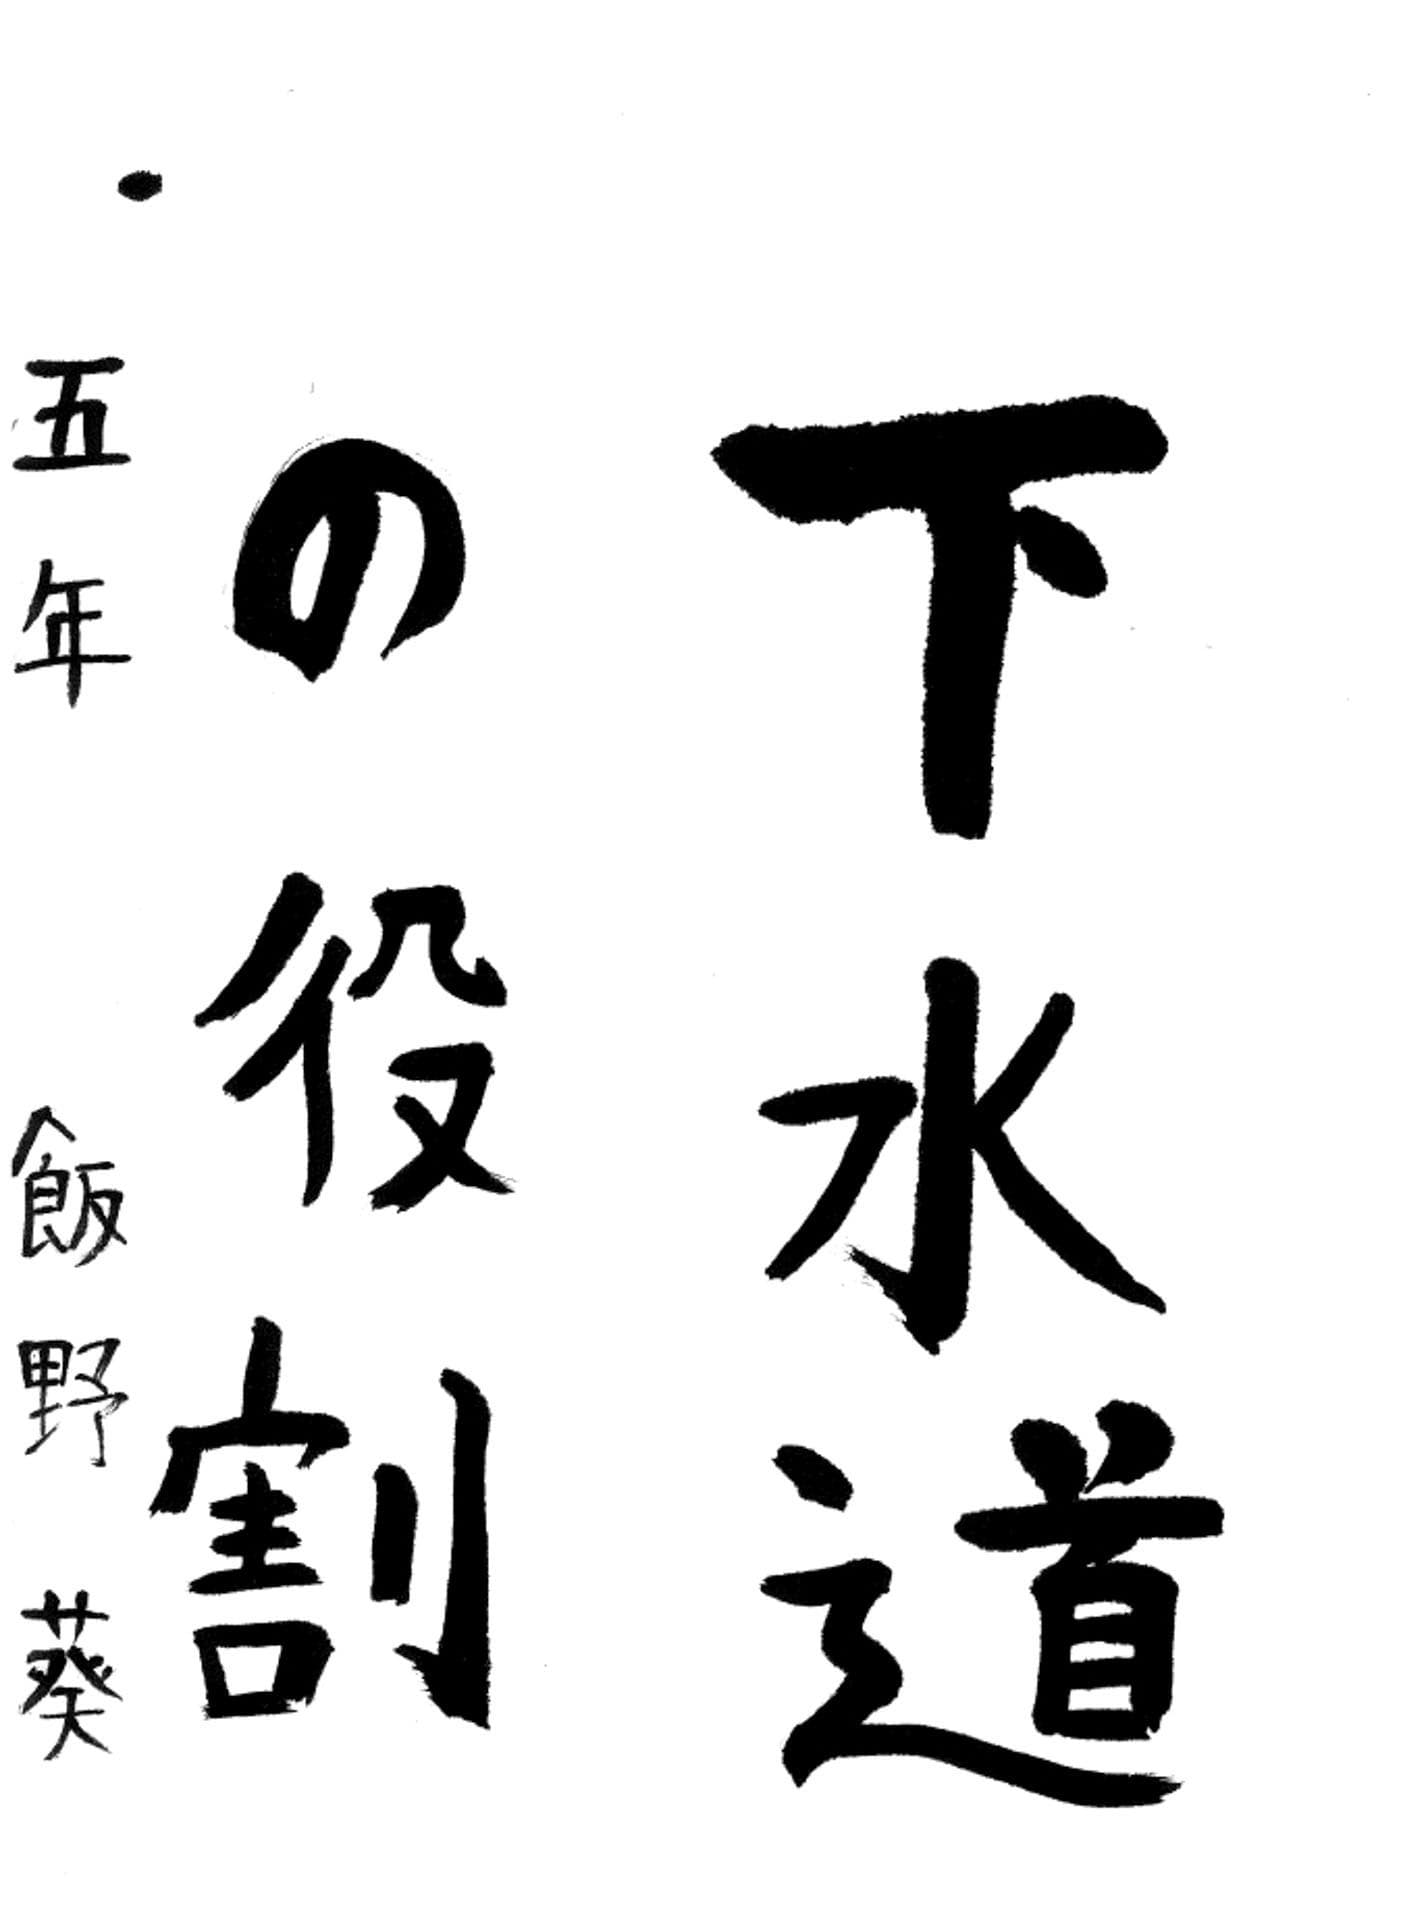 下水道
の役割
五年 飯野葵